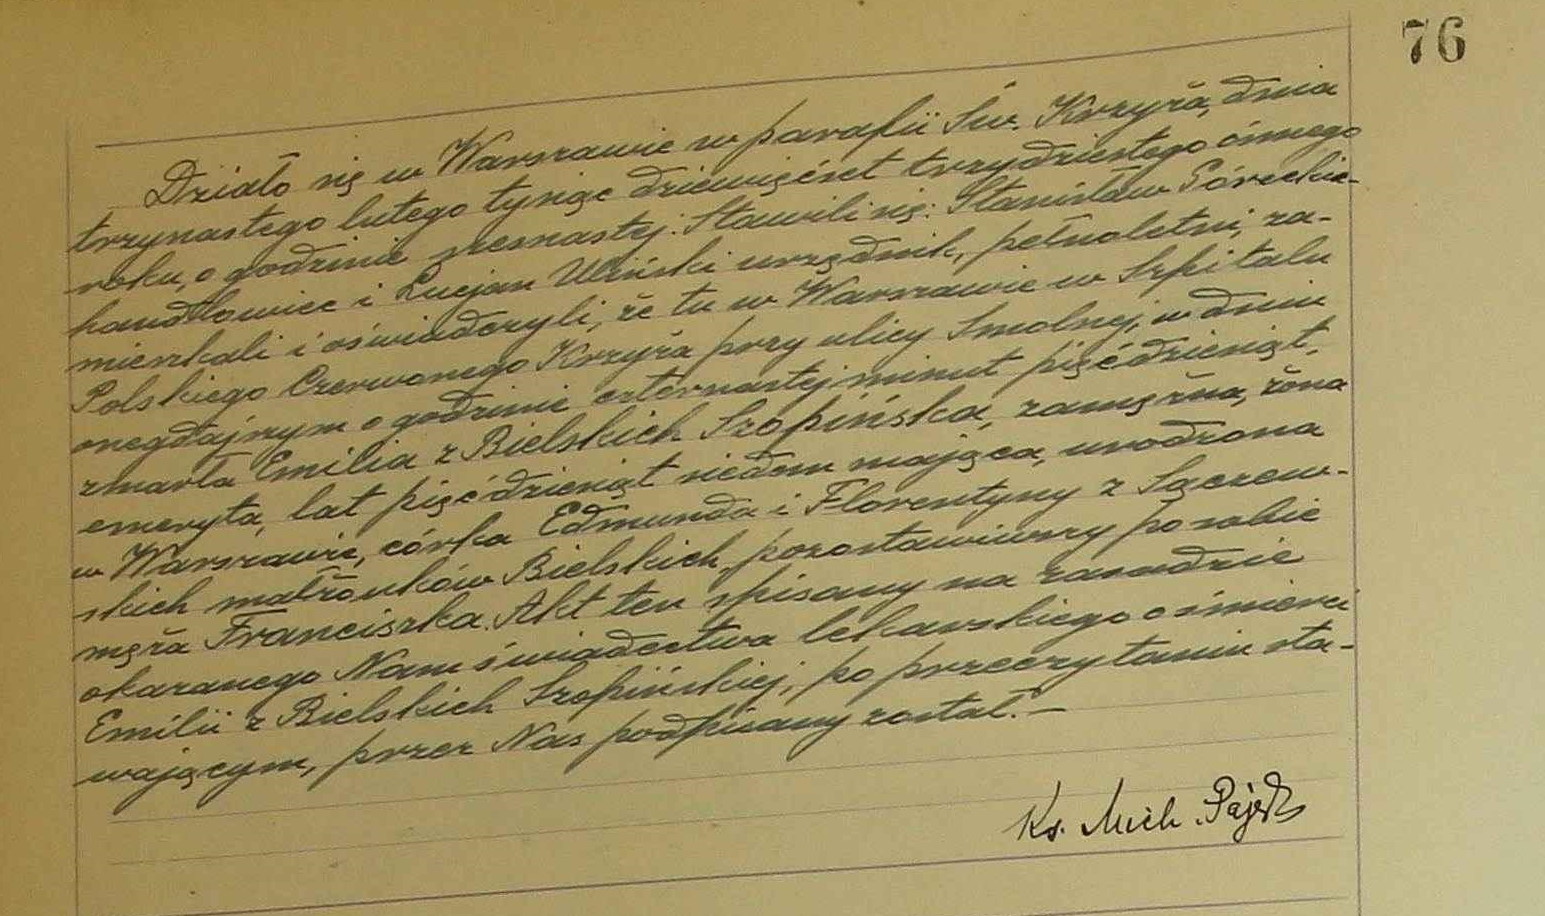 76
Działo się w Warszawie w parafii Św. Krzyża, dnia
trzynastego lutego tysiąc dziewięćset trzydziestego ósmego
roku, o godzinie szesnastej. Stawili się: Stanisław
handlowiec i Lucjan urzędnik, pełnoletni, za-
mieszkali i oświadczyli, że tu w Warszawie w Szpitalu
Polskiego Czerwonego Krzyża przy ulicy Smolnej, w dniu
onegdajszym o godzinie czternastej minut pięćdziesiąt,
zmarła Emilia z Bielskich Szopińska, zamężna, żona
emeryta, lat pięćdziesiąt siedem mająca, urodzona
w Warszawie, córka Edmunda i Florentyny z Sączew-
skich małżonków Bielskich, pozostawiwszy po sobie
męża Franciszka. Akt ten spisany na zasadzie
okazanego Nam świadectwa lekarskiego o śmierci
Emilii z Bielskich Szopińskiej, po przeczytaniu sta-
wającym, przez Nas podpisany został. —
Ks. Mich.